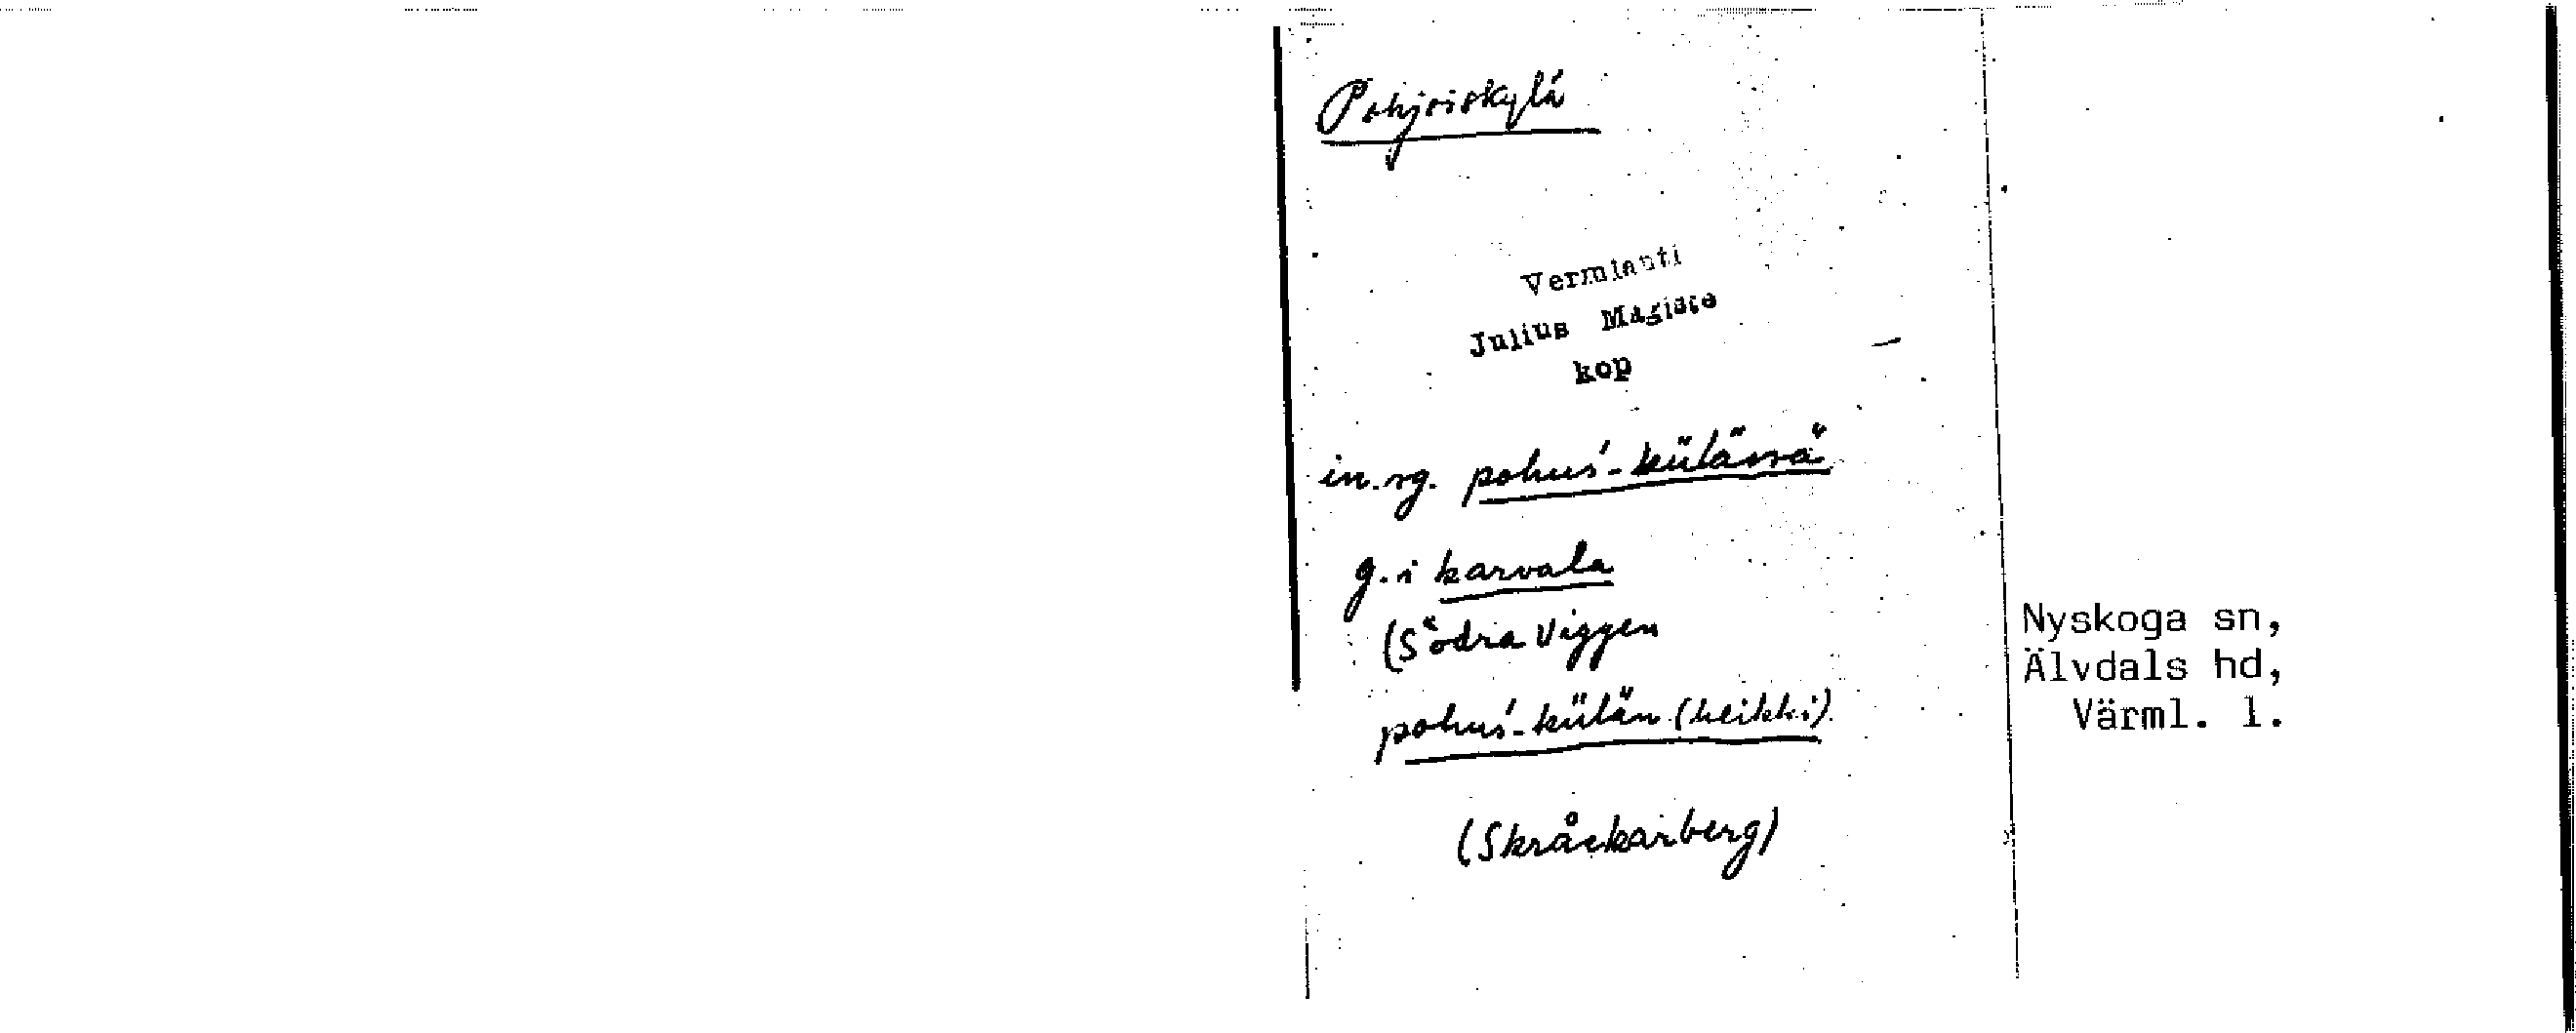 Pohjoiskylä
Vermlanti
Julius Mägiste
kop
in.sg. pohuś-külässä
g. i karvala
(Södra Viggen
pohuś-külän (heikki)
(Skråckarberg)
Nyskoga sn,
Älvdals hd,
Värml. l.